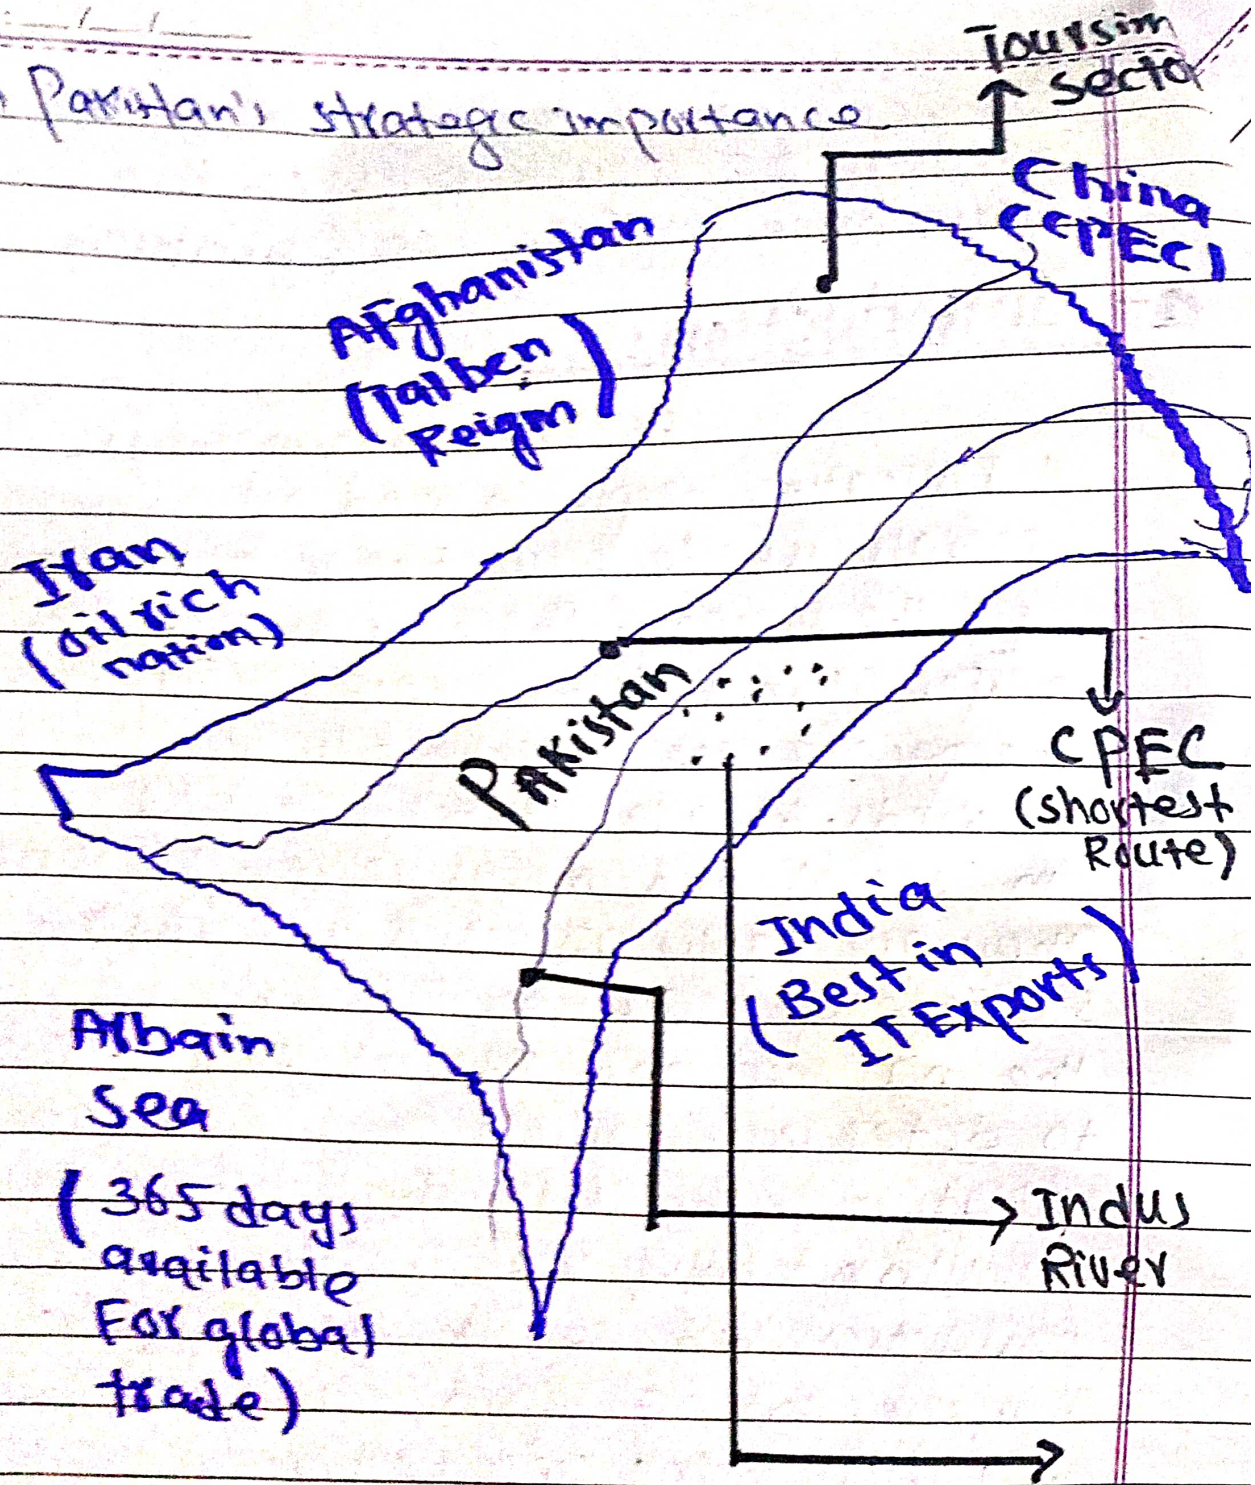 Toursim
Sector
Pakistan's strategic importance
China
(CPEC)
Afghanistan
(Talben
Reigm)
Iran
(oil rich
nation)
Pakistan
CPEC
(shortest
Route)
India
(Best in
IT Exports)
Arbain
Sea
(365 days
available
For global
trade)
Indus
River